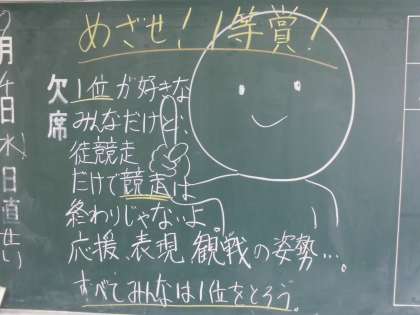 めざせ！1等賞！
1位が好きな
みんなだけど、
徒競走
だけで競走は
終わりじゃないよ。
応援、表現、観戦の姿勢…。
すべてみんなは1位をとろう。
欠席
月4日水日直せい